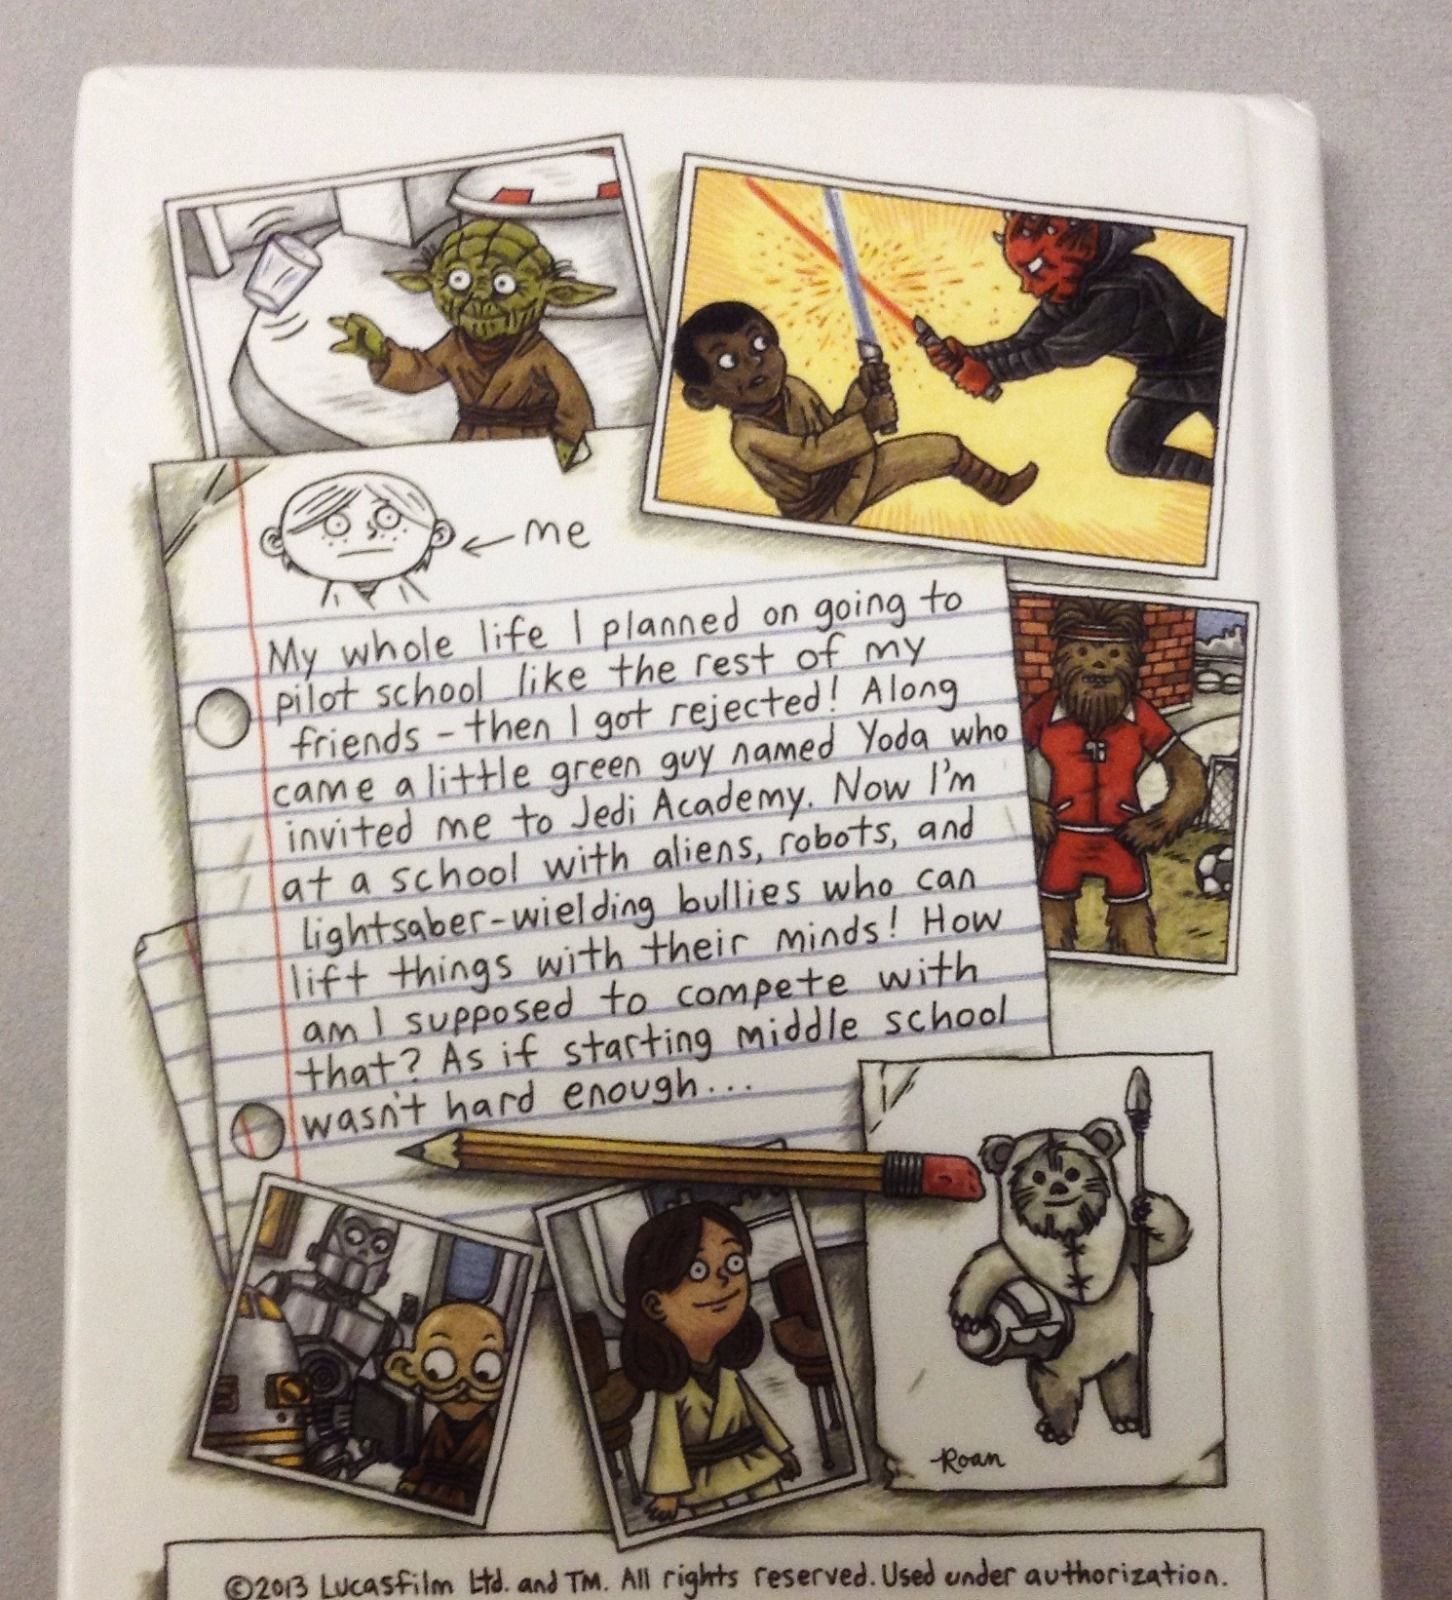 me
My whole life I planned on going to
pilot school like the rest of my
friends - then I got rejected! Along
came a little green guy named Yoda who
invited me to Jedi Academy. Now I'm
at a school with aliens, robots, and
lightsaber-wielding bullies who can
lift things with their minds! How
am I supposed to compete with
that? As if starting middle school
wasn't hard enough...
Roan
©2013 Lucasfilm Ltd. and TM. All rights reserved. Used under authorization.